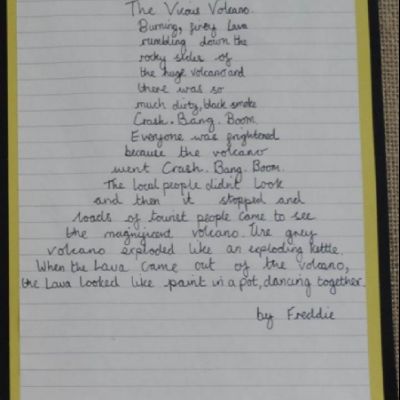 The Vicous Volcano.
Burning, firey Lava
rumbling down the
rocky sides of
the huge volcano and
there was so
much dirty, black smoke
Crash. Bang. Boom.
Everyone was frightened
because the volcano
went Crash. Bang. Boom.
The local people didn't Look
and then it stopped and
loads of tourist people came to see
the magnificent volcano. The grey
volcano exploded like an exploding kettle.
When the Lava came out of the volcano,
the Lava looked like paint in a pot, dancing together
by Freddie